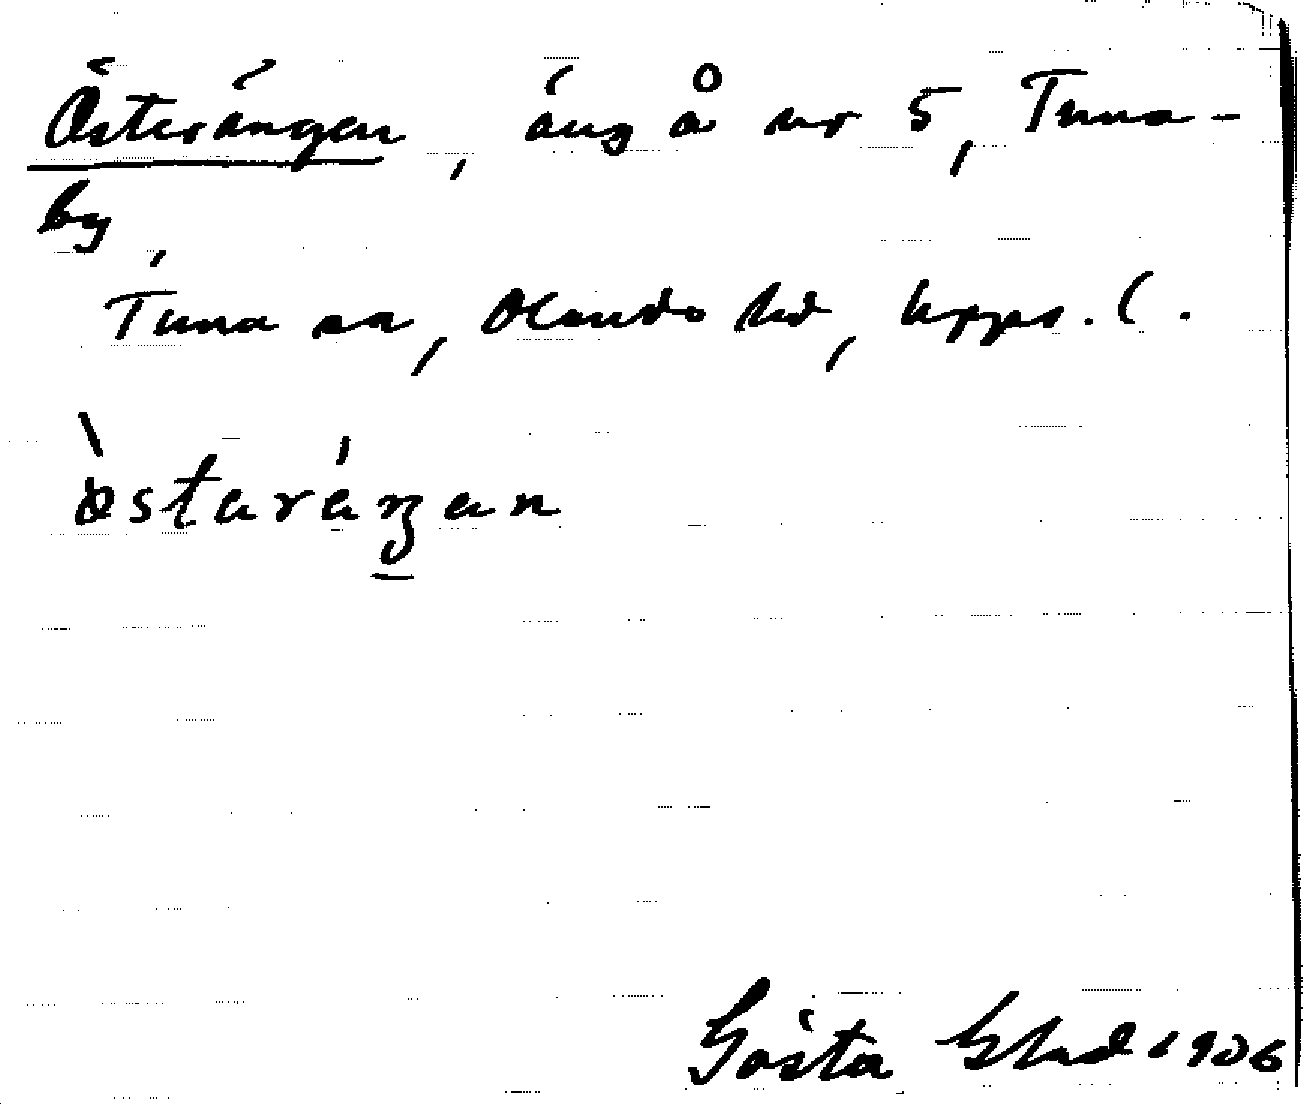 Österängen, äng å nr 5, Tuna-
by,
Tuna sn, Olands hd, Upps. l.
östaräŋan
Gösta 1906